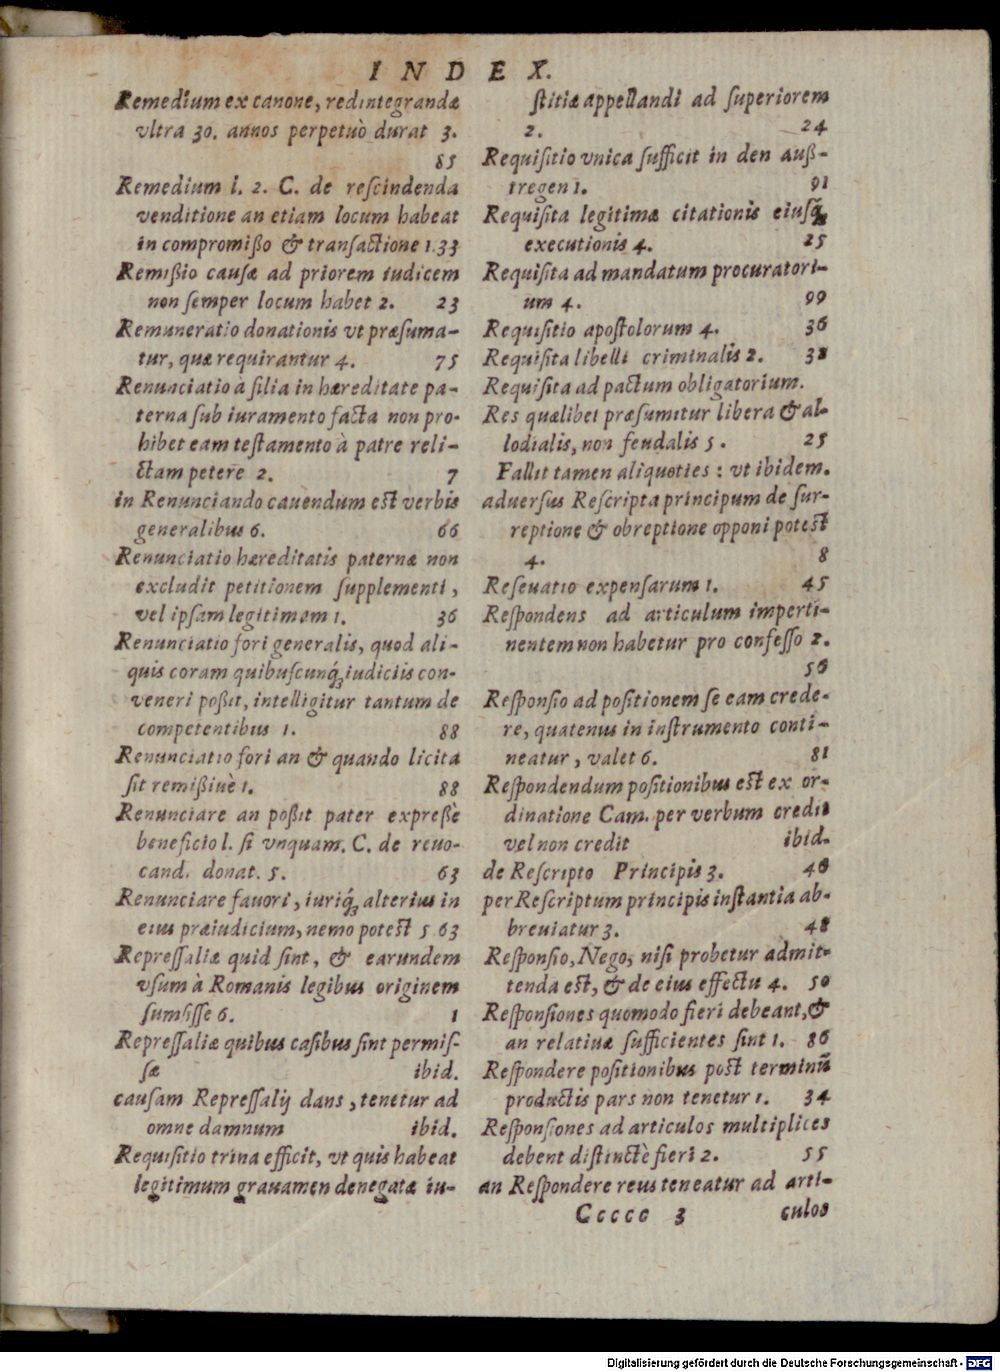 INDEX.
Remedium ex canone, redintegrandæ
vltra 30. annos perpetuò durat 3.
85
Remedium l. 2. C. de rescindenda
venditione an etiam locum habeat
in compromißo & transactione 1.33
Remißio causæ ad priorem iudicem
non semper locum habet 2. 23
Remuneratio donationis vt præsuma-
tur, quæ requirantur 4. 75
Renunciatio à filia in hæreditate pa-
terna sub iuramento facta non pro-
hibet eam testamento à patre reli-
ctam petere 2. 7
in Renunciando cauendum est verbis
generalibus 6. 66
Renunciatio hæreditatis paternæ non
excludit petitionem supplementi,
vel ipsam legitimam 1. 36
Renunciatio fori generalis, quod ali-
quis coram quibuscunq́; iudiciis con-
veneri poßit, intelligitur tantum de
competentibus 1. 88
Renunciatio fori an & quando licita
sit remißiuè 1. 88
Renunciare an poßit pater expreßè
beneficio l. si vnquam. C. de reuo-
cand. donat. 5. 63
Renunciare fauori, iuriq́; alterius in
eius præiudicium, nemo potest 5 63
Repressaliæ quid sint, & earundem
vsum à Romanis legibus originem
sumsisse 6. 1
Repressaliæ quibus casibus sint permis-
sæ ibid.
causam Repressalij dans, tenetur ad
omne damnum ibid.
Requisitio trina efficit, vt quis habeat
legitimum grauamen denegatæ iu-
stitiæ appellandi ad superiorem
2. 24
Requisitio vnica sufficit in den auß-
tregen 1. 91
Requisita legitimæ citationis eiusq́;
executionis 4. 25
Requisita ad mandatum procuratori-
um 4. 99
Requisitio apostolorum 4. 36
Requisita libelli criminalis 2. 38
Requisita ad pactum obligatorium.
Res quælibet præsumitur libera & al-
lodialis, non feudalis 5. 25
Fallit tamen aliquoties : vt ibidem.
aduersus Rescripta principum de sur-
reptione & obreptione opponi potest
4. 8
Reseuatio expensarum 1. 45
Respondens ad articulum imperti-
nentem non habetur pro confesso 2.
56
Responsio ad positionem se eam crede-
re, quatenus in instrumento conti-
neatur, valet 6. 81
Respondendum positionibus est ex or-
dinatione Cam. per verbum credit
vel non credit ibid.
de Rescripto Principis 3. 46
per Rescriptum principis instantia ab-
breuiatur 3. 48
Responsio, Nego, nisi probetur admit-
tenda est, & de eius effectu 4. 50
Responsiones quomodo fieri debeant, &
an relatiuæ sufficientes sint 1. 86
Respondere positionibus post terminū
productis pars non tenetur 1. 34
Responsiones ad articulos multiplices
debent distinctè fieri 2. 55
an Respondere reus teneatur ad arti-
Ccccc 3 culos
Digitalisierung gefördert durch die Deutsche Forschungsgemeinschaft - DFG